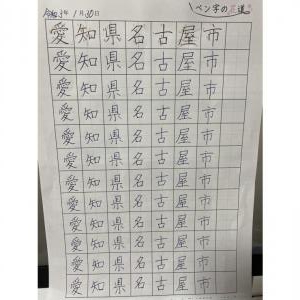 令和3年 1月30日
ペン字の
愛知県名古屋市
愛知県名古屋市
愛知県名古屋市
愛知県名古屋市
愛知県名古屋市
愛知県名古屋市
愛知県名古屋市
愛知県名古屋市
愛知県名古屋市
愛知県名古屋市
愛知県名古屋市
愛知県名古屋市